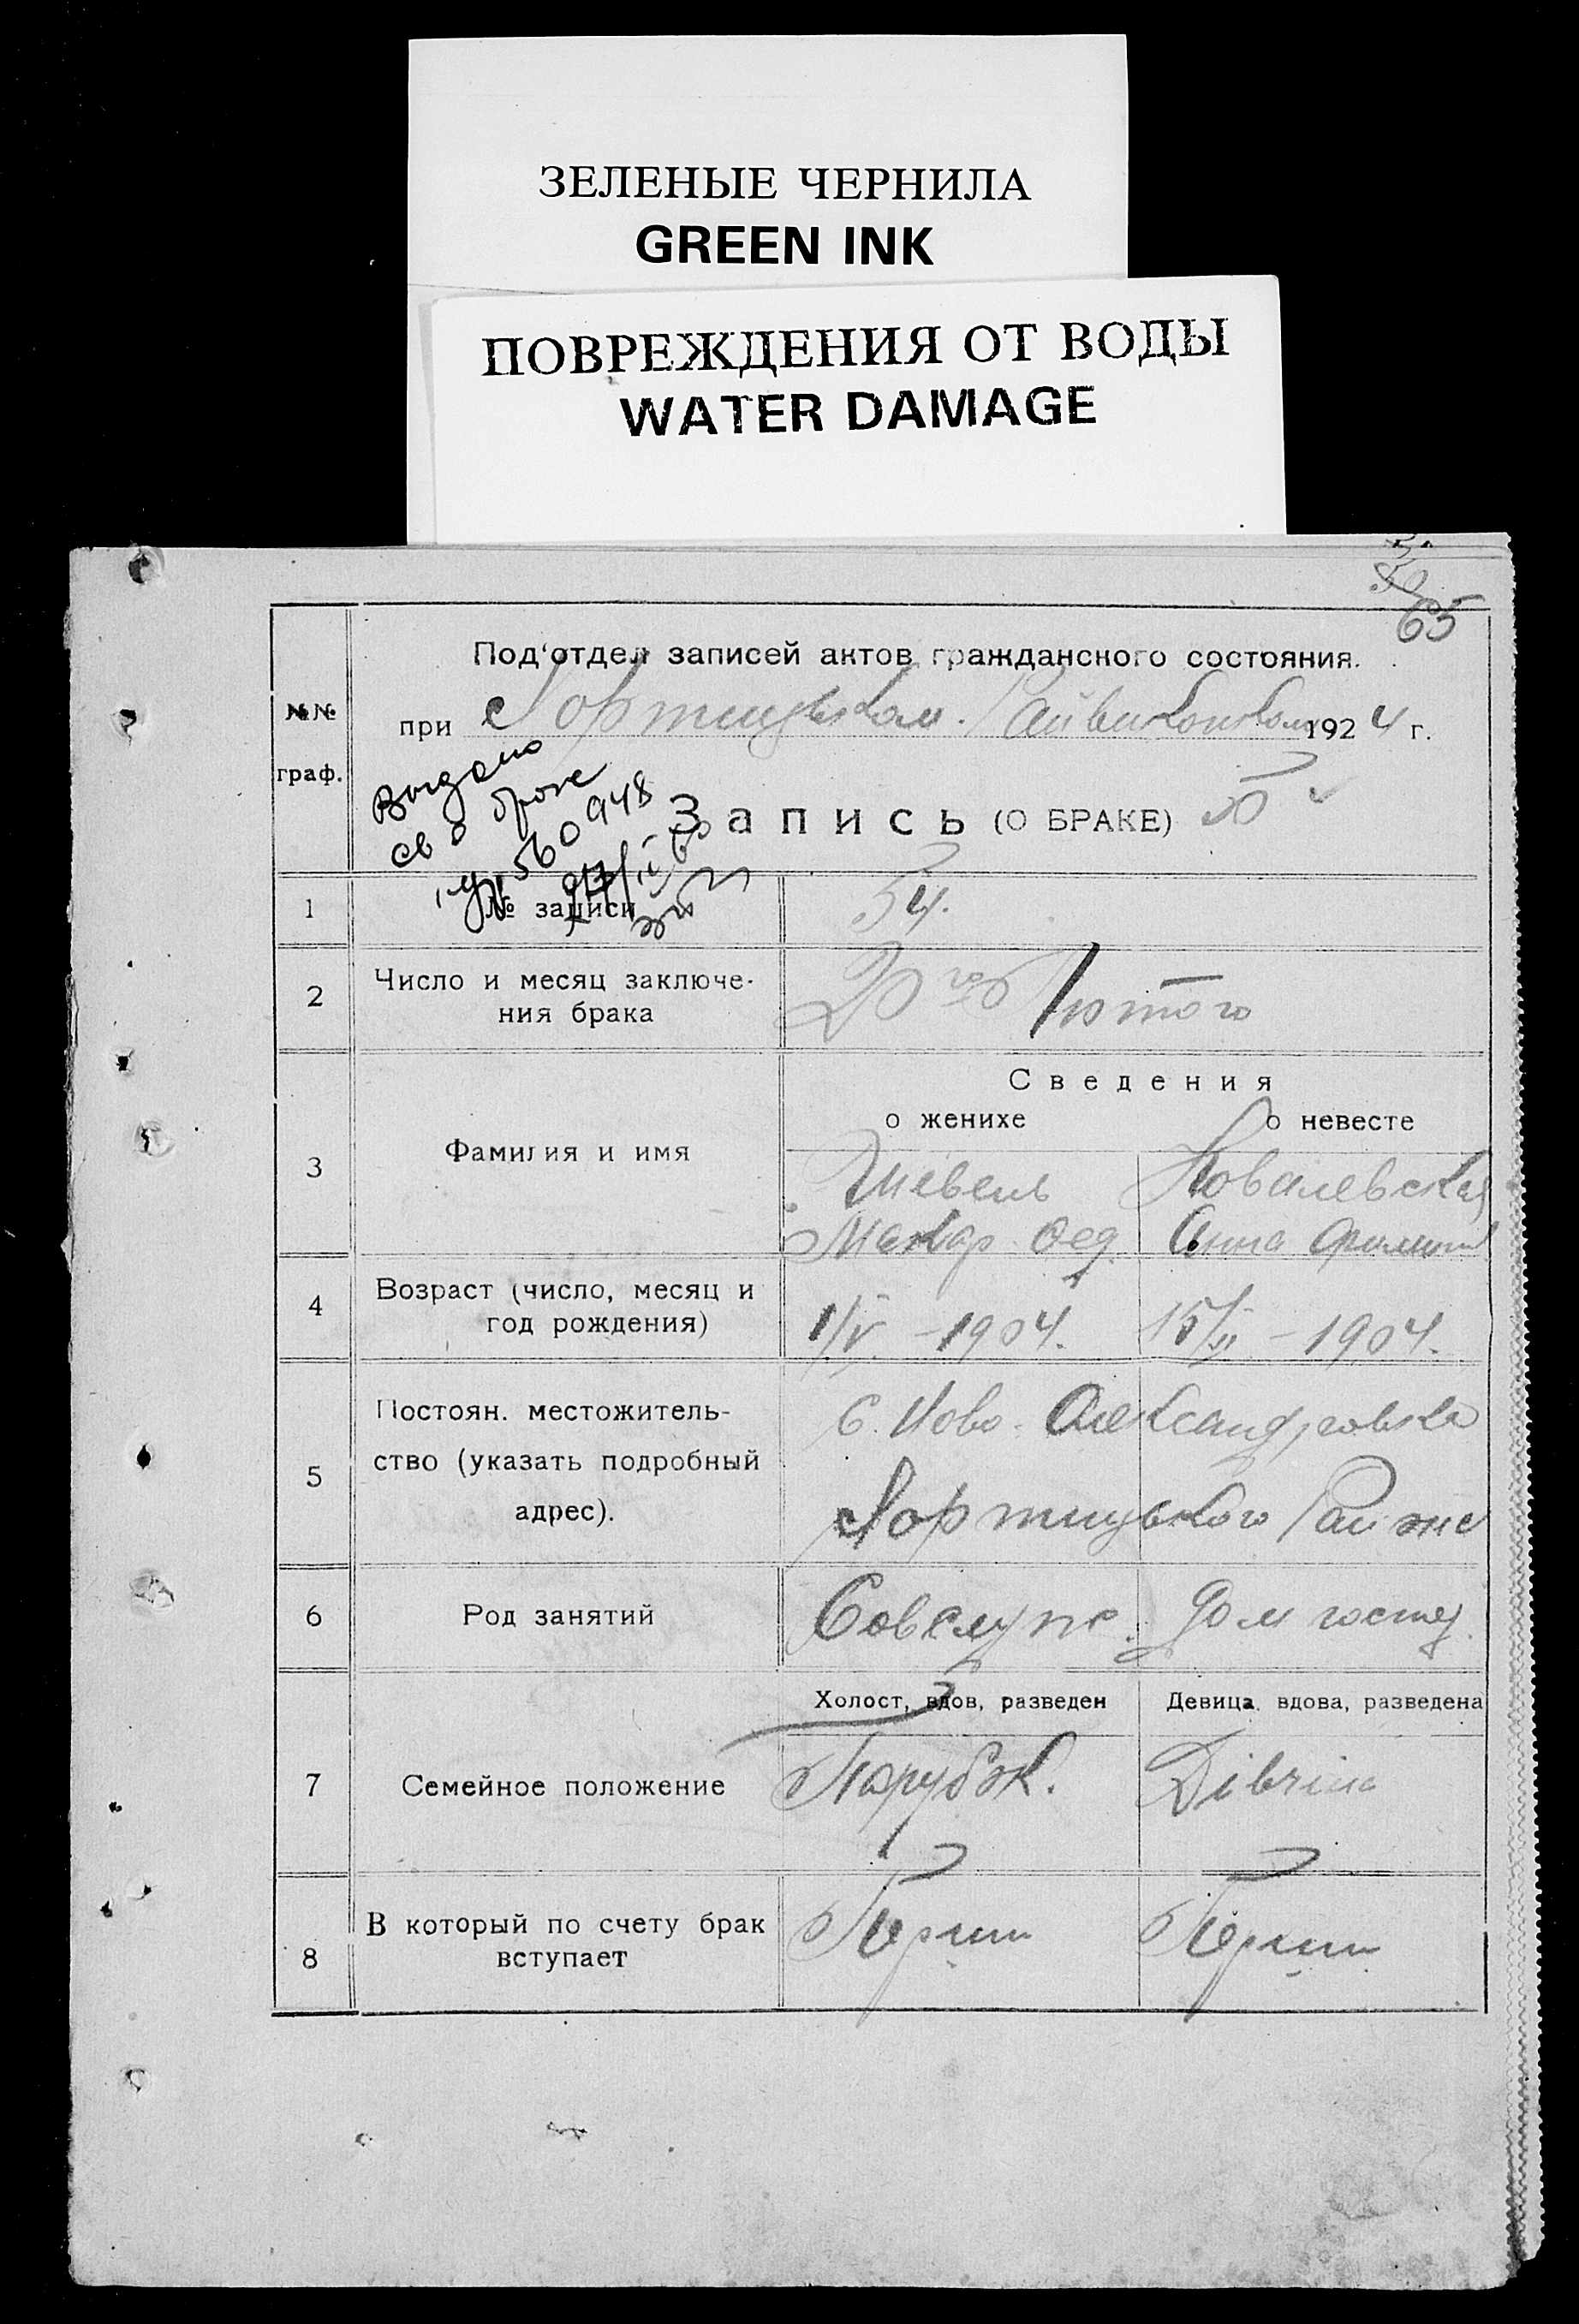 ЗЕЛЕНЫЕ ЧЕРНИЛА
GREEN INK
ПОВРЕЖДЕНИЯ ОТ ВОДЫ
WATER DAMAGE
65
№№ граф.
Под'отдел записей актов гражданского состояния.
при Хортицьком Райвиконкоми 1924 г.
Выдано
св о браке
№ 560948
Запись (О БРАКЕ)
1 № записи 54.
2 Число и месяц заключе-
ния брака 20го Лютого
Сведения
о женихе о невесте
3 Фамилия и имя
Шевель Ковалевская
Макар Фед. Анна
4 Возраст (число, месяц и
год рождения) 1/V. – 1904. 15/II – 1904.
5 Постоян. местожитель-
ство (указать подробный
адрес).
С. Ново-Александровка
Хортицького Району
6 Род занятий Совслуж. Дом господ.
Холост, вдов, разведен Девица, вдова, разведена
7 Семейное положение Парубок. Дівчина
8 В который по счету брак
вступает Перший Перший